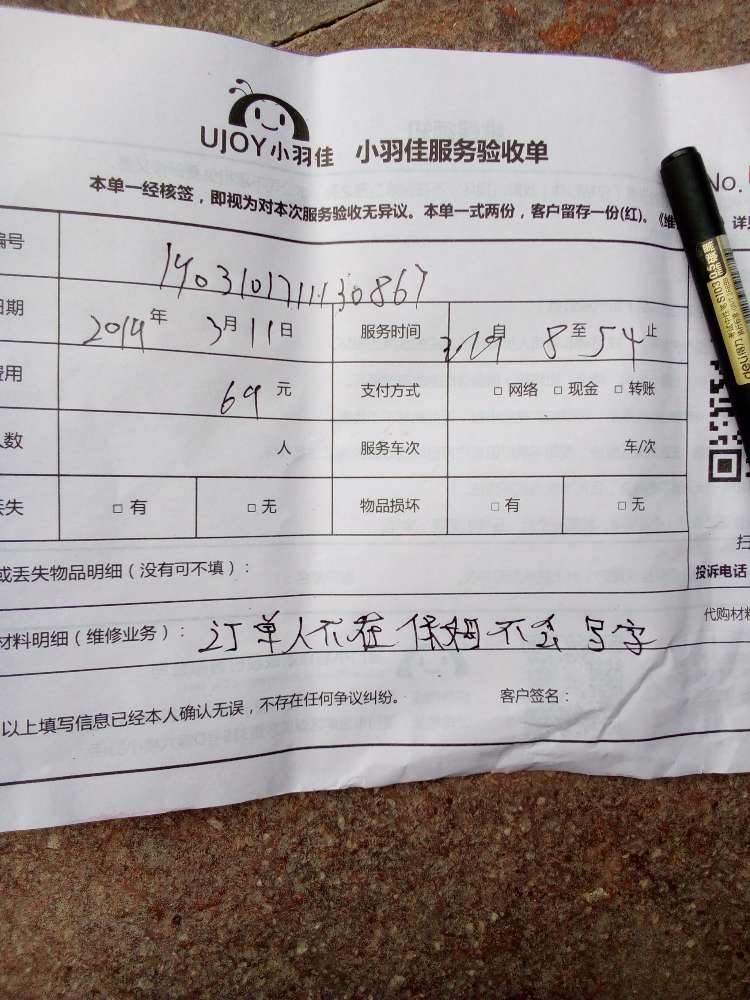 UJOY小羽佳 小羽佳服务验收单
No.
本单一经核签，即视为对本次服务验收无异议。本单一式两份，客户留存一份(红)。《维
详见
编号 1403101711130867
日期 2014年3月11日 服务时间 自 8至54止
费用 69元 支付方式 □网络 □现金 □转账
人数 人 服务车次 车/次
丢失 □有 □无 物品损坏 □有 □无
或丢失物品明细（没有可不填）：
投诉电话
材料明细（维修业务）：订单人不在保姆不会写字
代购材料
以上填写信息已经本人确认无误，不存在任何争议纠纷。 客户签名：
deli得力
S103